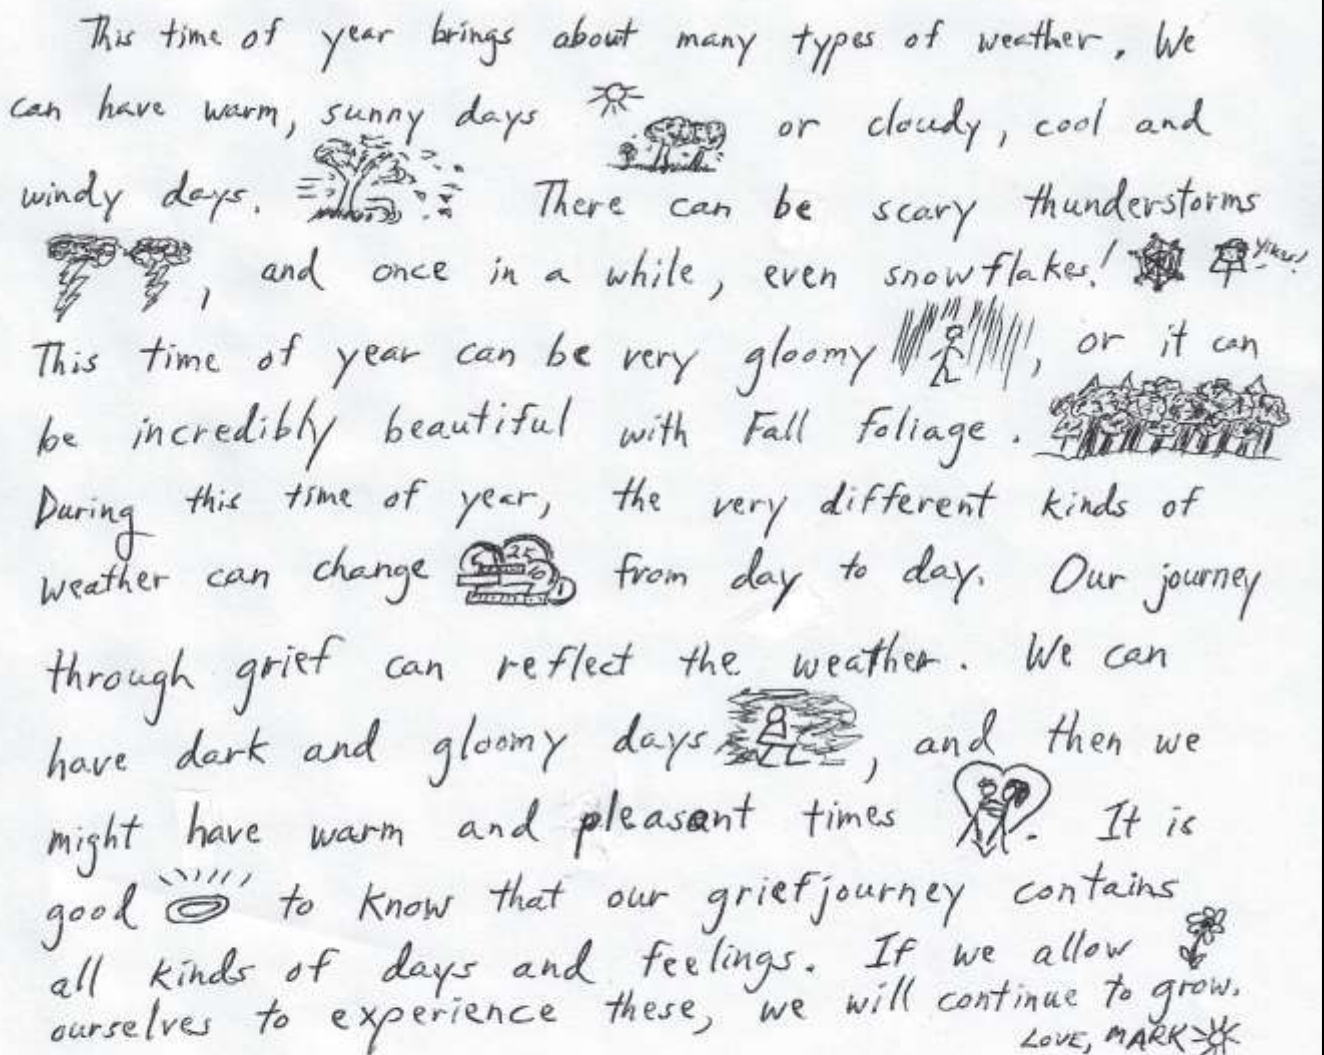 This time of year brings about many types of weather. We
can have warm, sunny days or cloudy, cool and
windy days. There can be scary thunderstorms
, and once in a while, even snowflakes! Yikes!
This time of year can be very gloomy , or it can
be incredibly beautiful with Fall foliage.
During this time of year, the very different kinds of
weather can change 25 10 1 from day to day. Our journey
through grief can reflect the weather. We can
have dark and gloomy days , and then we
might have warm and pleasant times . It is
good to know that our grief journey contains
all kinds of days and feelings. If we allow
ourselves to experience these, we will continue to grow.
LOVE, MARK